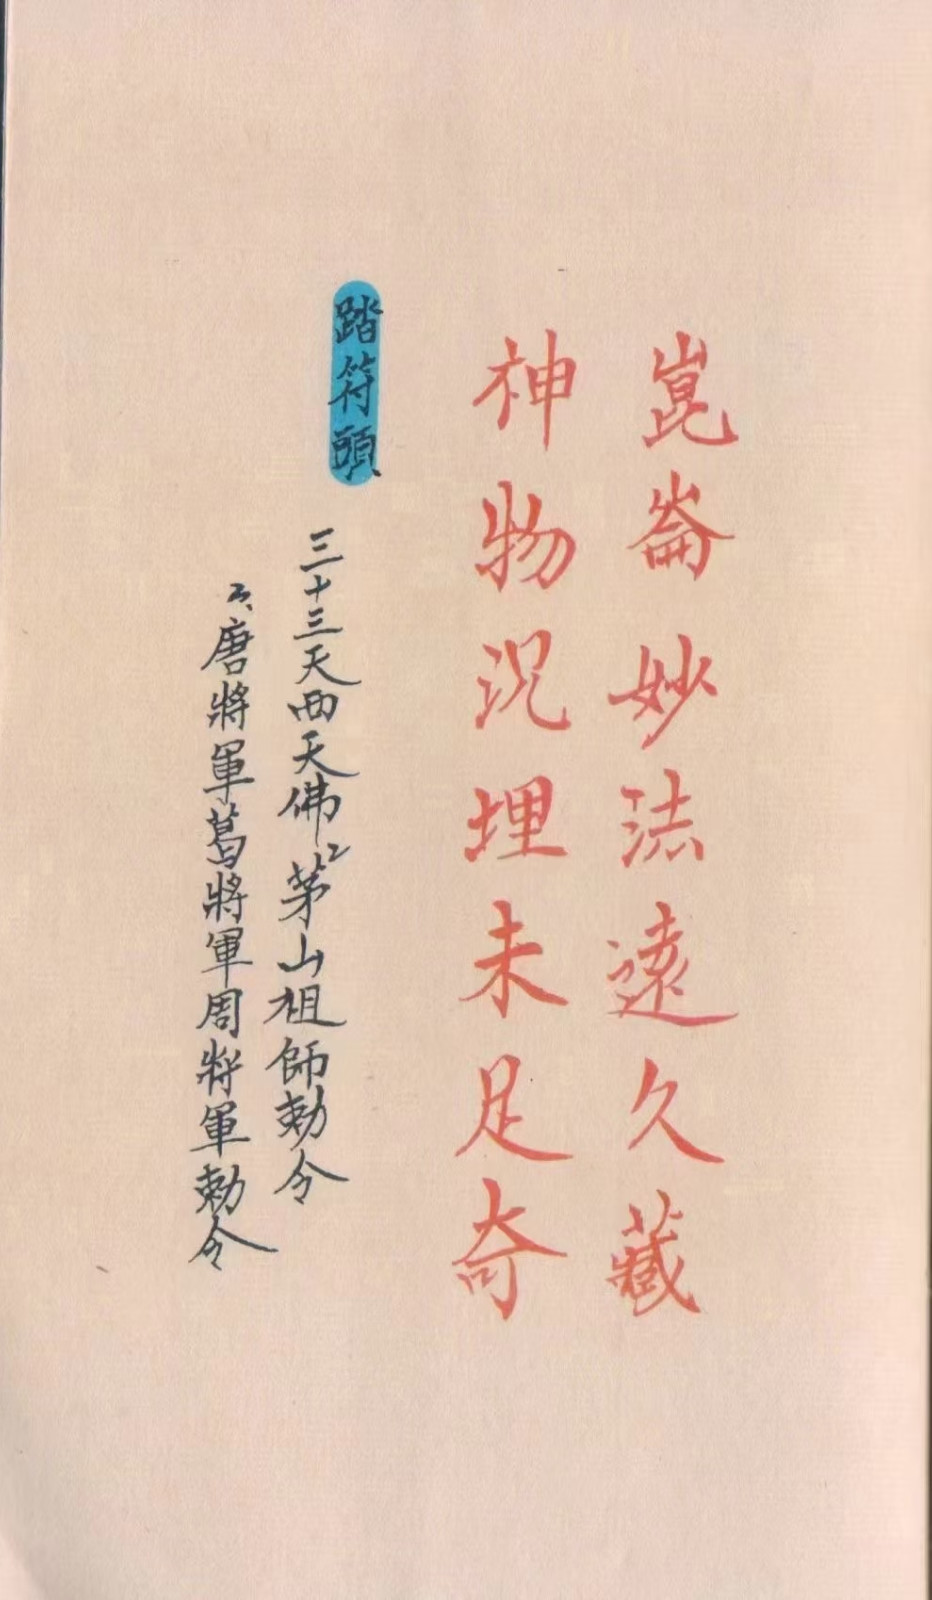 崑崙妙法遠久藏
神物沉埋未足奇
踏符頭
三十三天西天佛2茅山祖師勅令
3、唐將軍葛將軍周將軍勅令